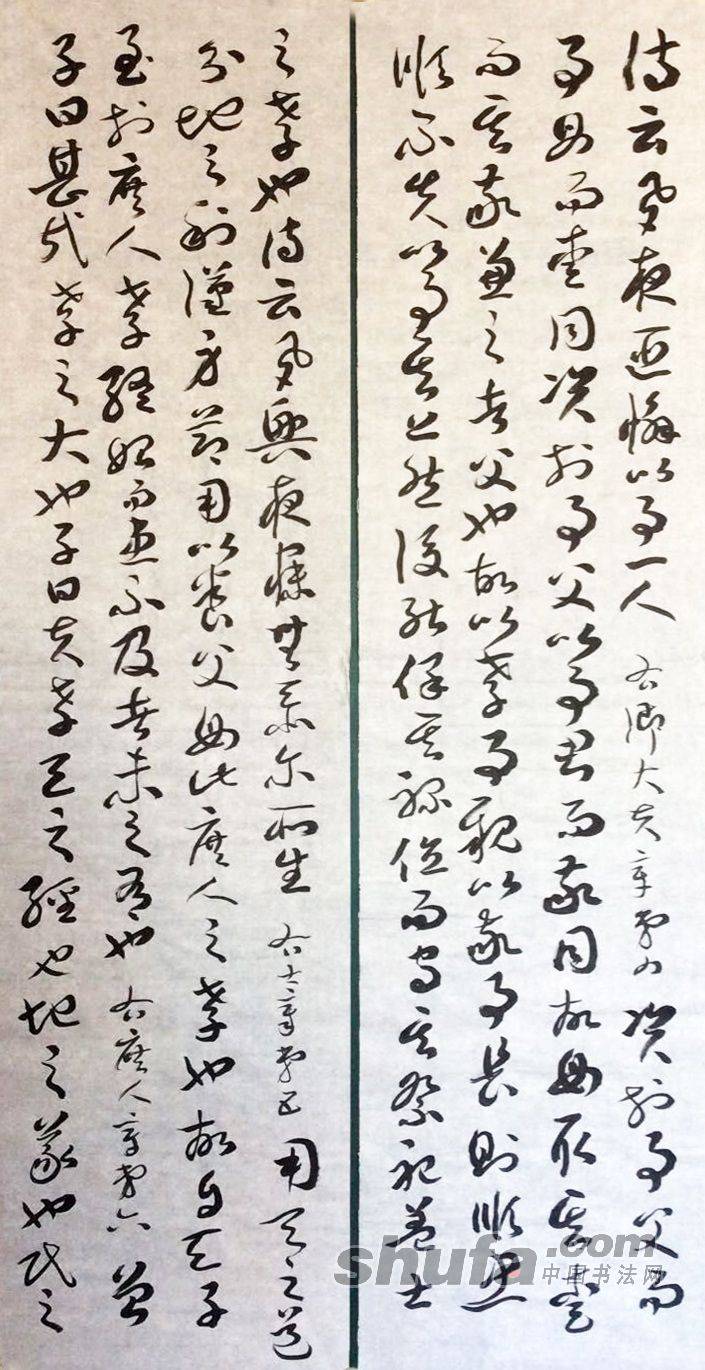 詩云夙夜匪懈以事一人 右卿大夫章第四 資於事父而
事母而愛同資於事父以事君而敬同故母取其愛
而其敬兼之者父也故以孝事親以敬事長則順忠
順不失以事其上然後能保其祿位而守其祭祀蓋士
之孝也詩云夙興夜寐無忝爾所生 右士章第五 用天之道
分地之利謹身節用以養父母此庶人之孝也故自天子
至於庶人孝終始而患不及者未之有也 右庶人章第六 曾
子曰甚哉孝之大也子曰夫孝天之經也地之義也民之
shufa.com
中国书法网